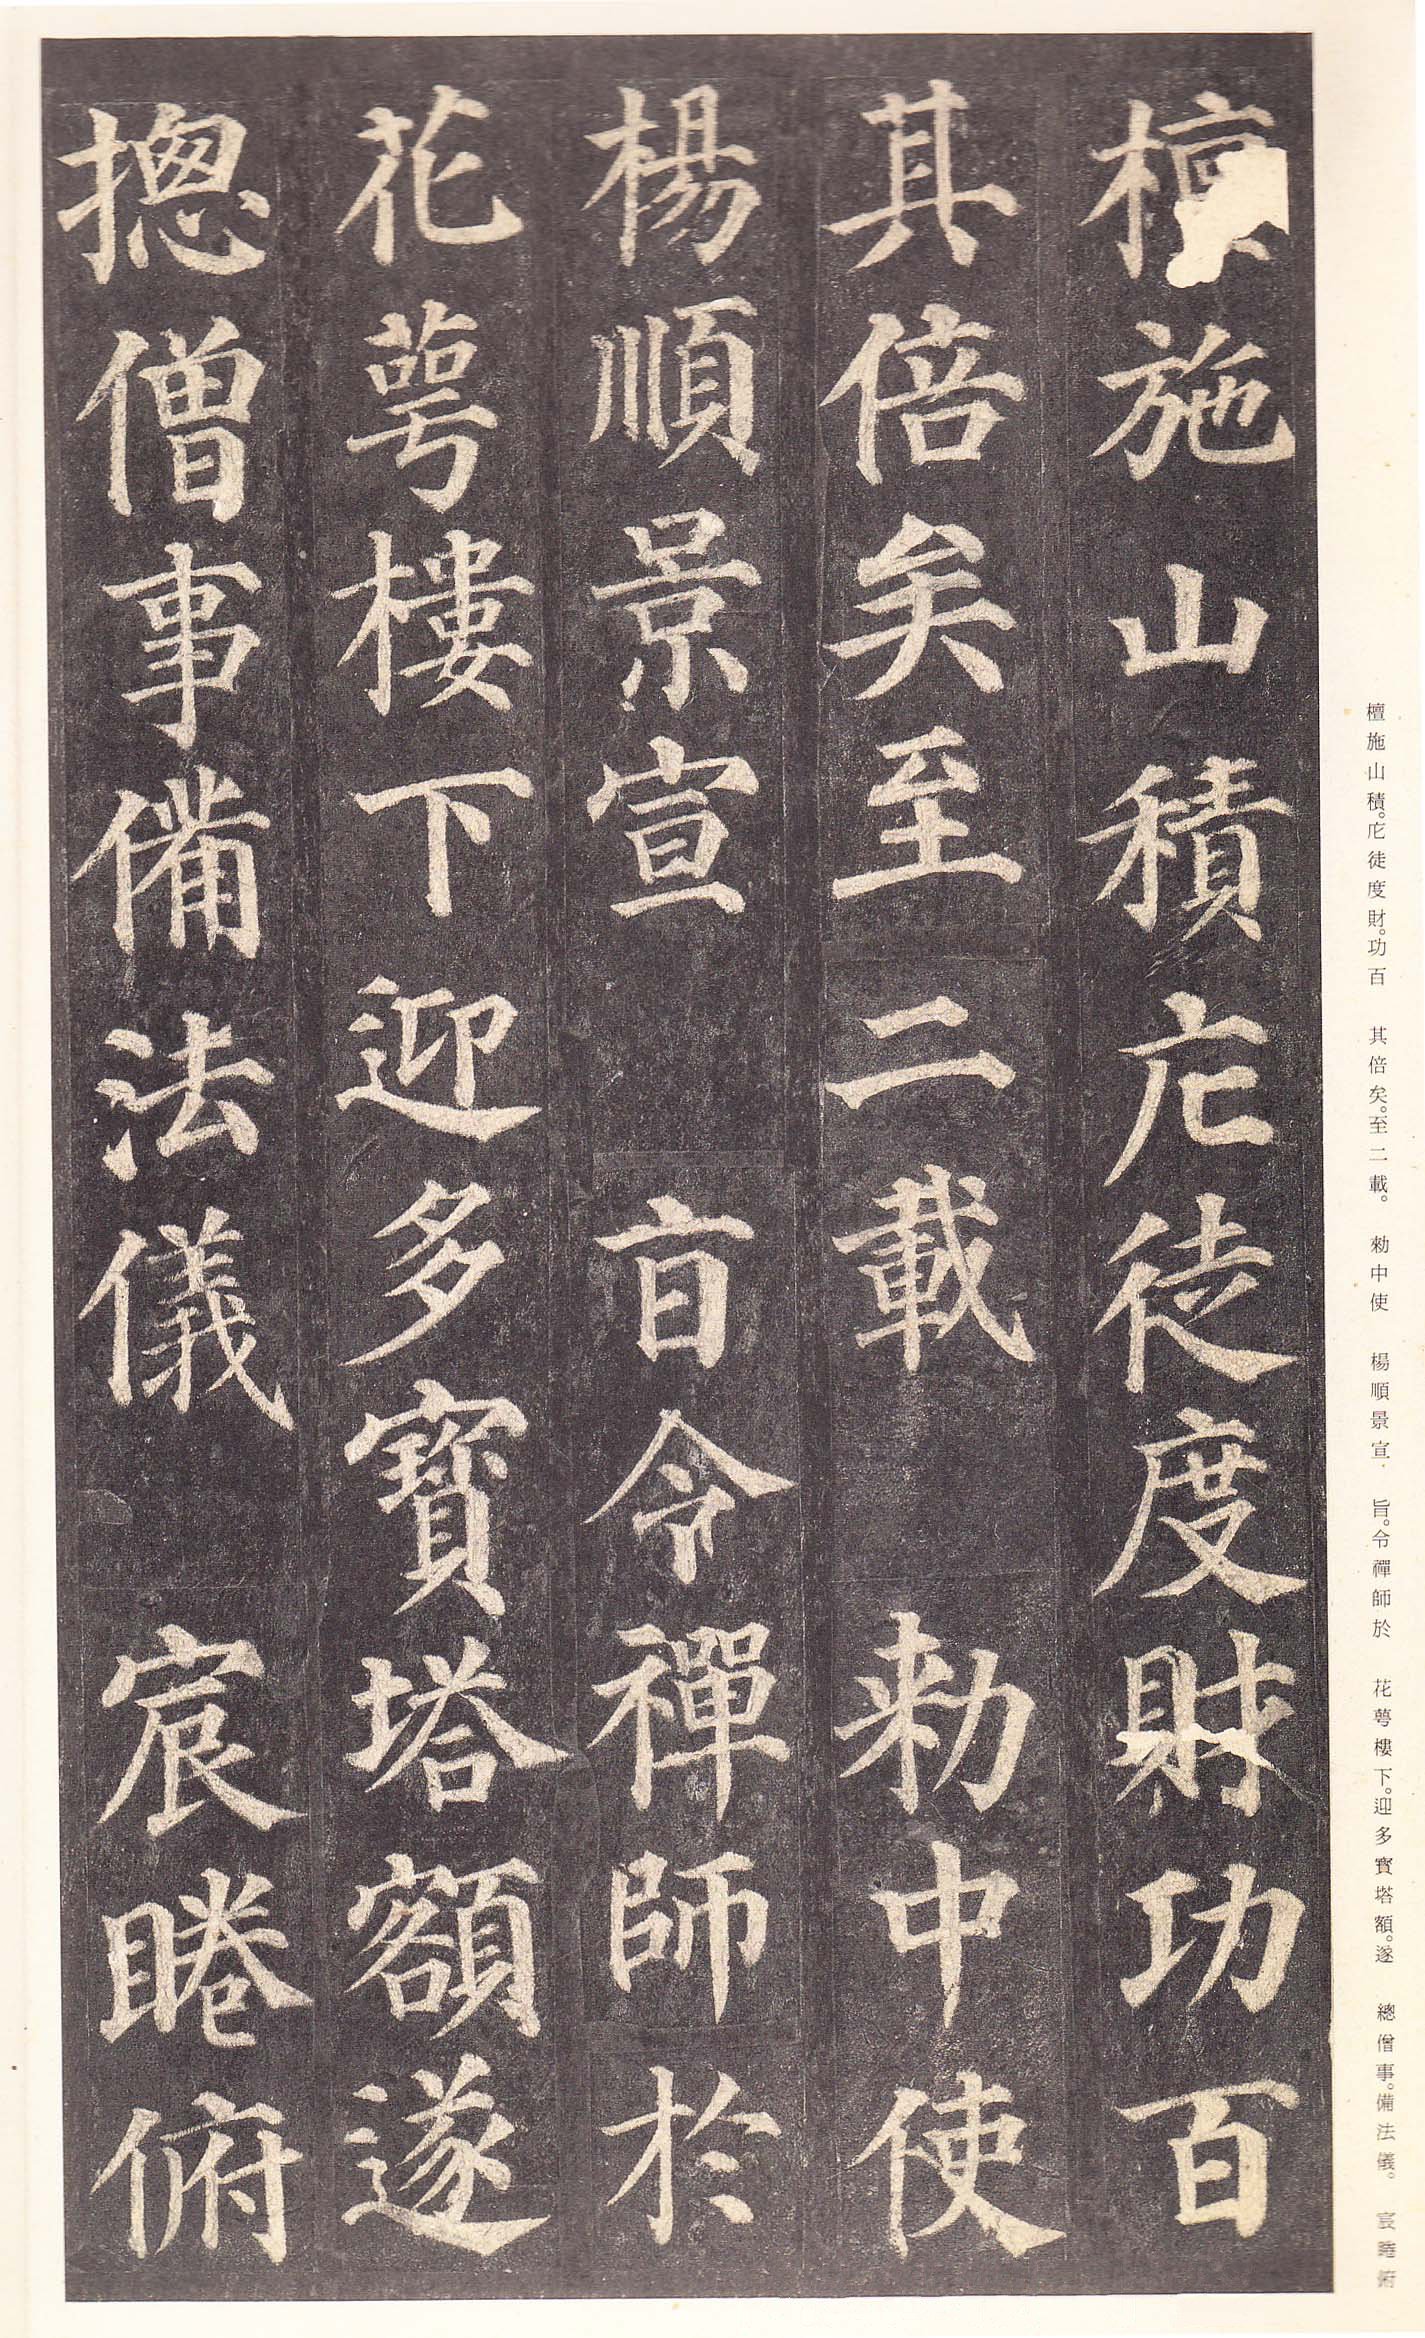 檀施山積庀徒度財功百
其倍矣至二載 勑中使
楊順景宣 㫖令禪師於
花萼樓下迎多寶塔額遂
揔僧事備法儀 宸睠俯
檀施山積。庀徒度財。功百 其倍矣。至二載。 勑中使 楊順景宣 旨。令禪師於 花萼樓下。迎多寶塔額。遂 總僧事。備法儀。 宸睠俯